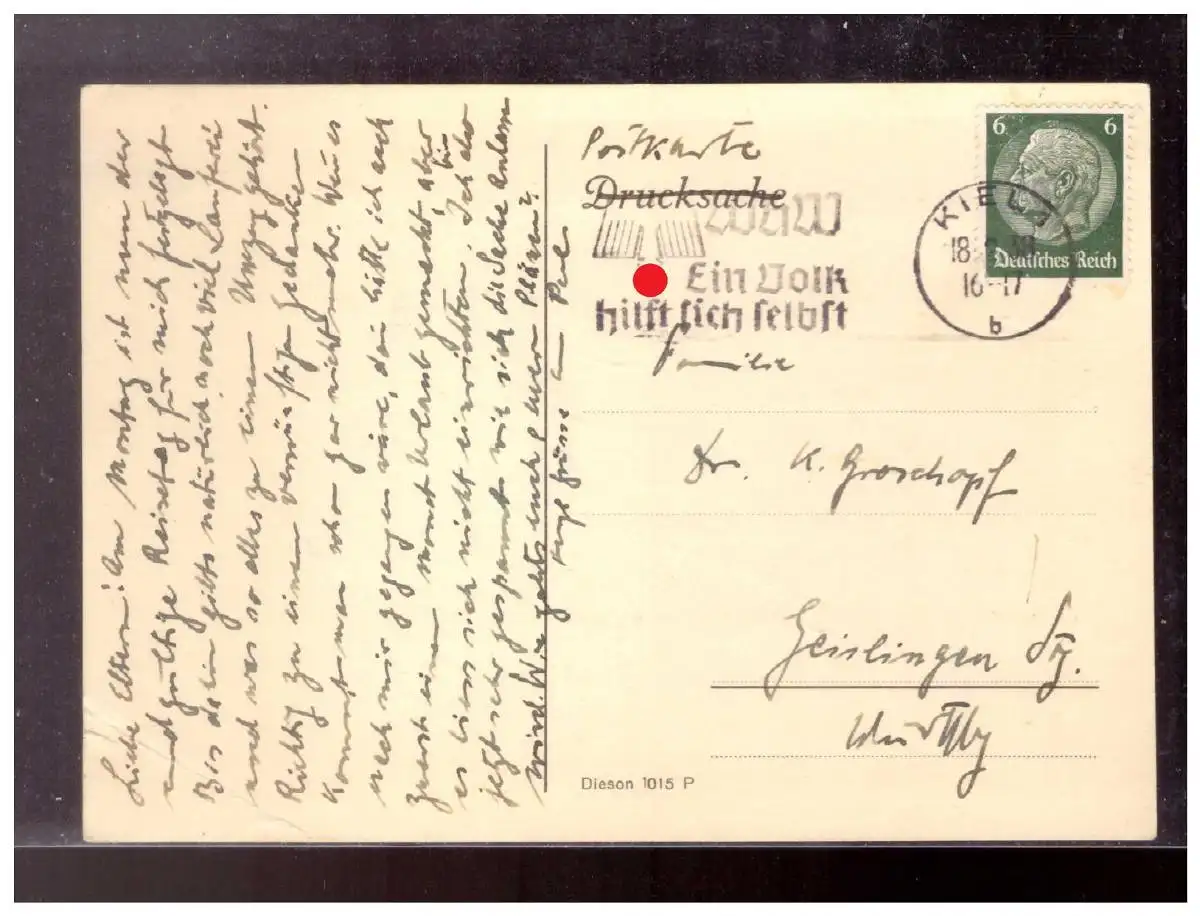 Liebe Eltern! Am Montag ist nun der
endgültige Reisetag für mich festgelegt
Bis dahin gibts natürlich noch viel Lauferei
und was so alles zu einem Umzug gehört.
Richtig zu einem vernünftigen Gedanken
kommt man schon gar nicht mehr. Wenn es
nach mir gegangen wäre, dann hätte ich auch
zuerst einen Monat Urlaub gemacht, aber
es liess sich nicht einrichten. Ich bin aber
jetzt sehr gespannt wie sich die Sache anlassen
wird. Wie gehts euch u. euern Plänen?
Grüsse
Postkarte
Drucksache
WHW
Ein Volk
hilft sich selbst
6 6
Deutsches Reich
KIEL 1
18
16-17
b
Familie
Dr. K. Groschopf
Geislingen Stg.
Württbg
Dieson 1015 P